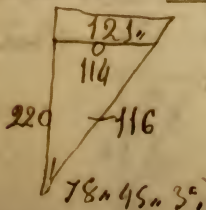 121„
114
220
116
78„ 45„ 3°,